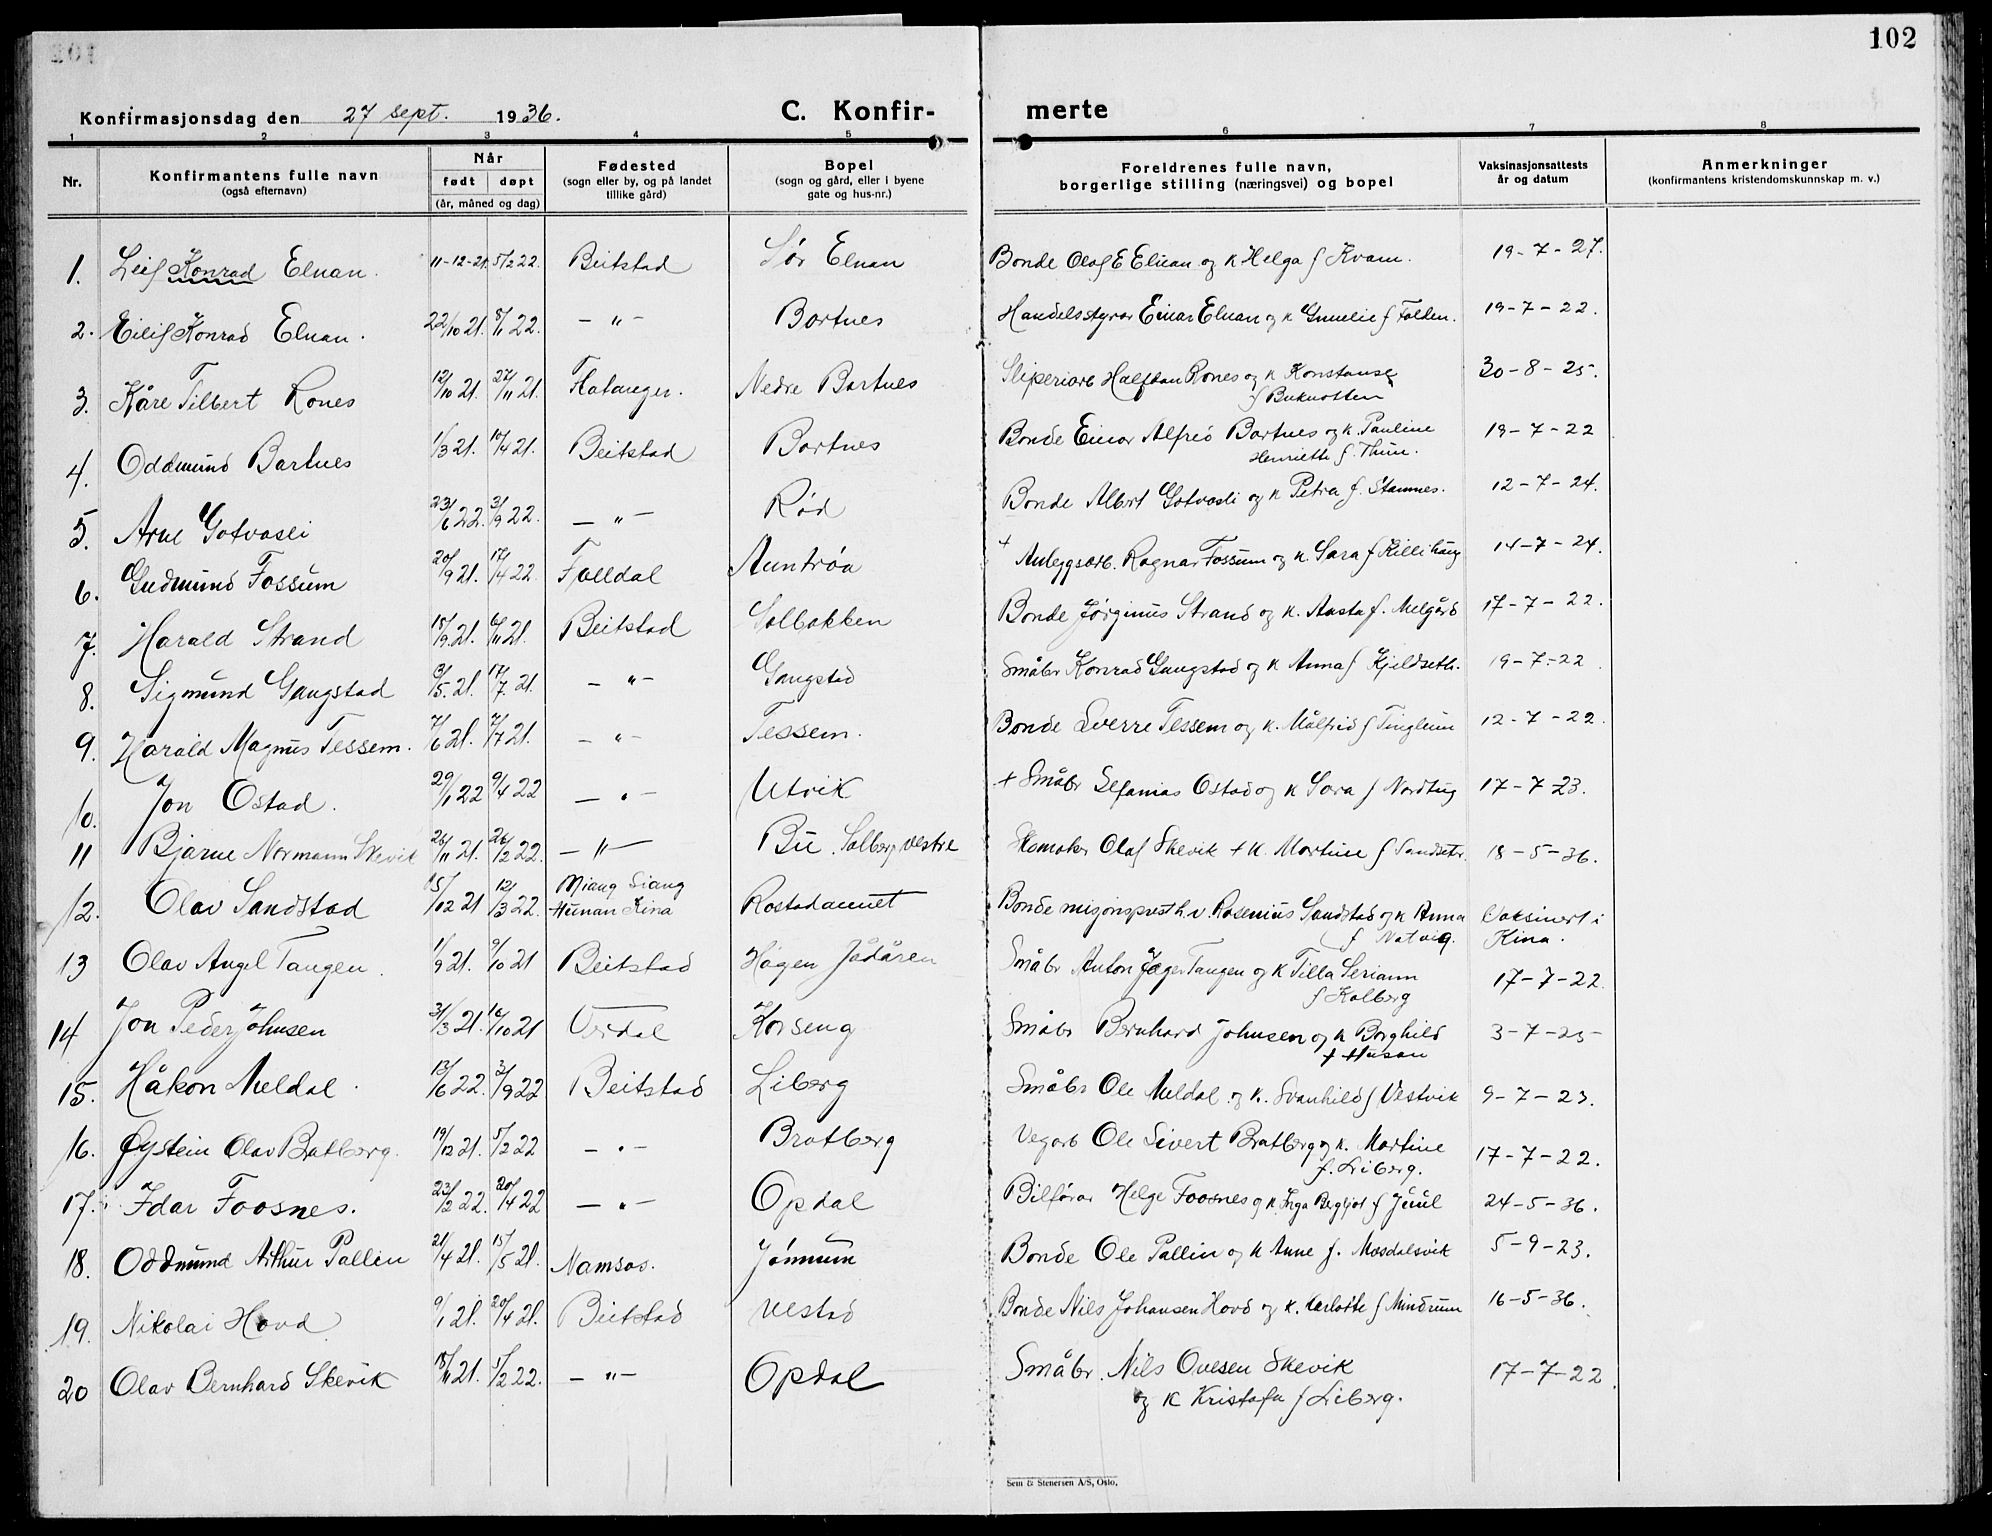 102
Konfirmasjonsdag den 27 sept. 1936.
C. Konfir- merte
1 2 3 4 5 6 7 8
Nr.
Konfirmantens fulle navn
(også efternavn)
Når
født døpt
(år, måned og dag)
Fødested
(sogn eller by, og på landet
tillike gård)
Bopel
(sogn og gård, eller i byene
gate og hus-nr.)
Foreldrenes fulle navn,
borgerlige stilling (næringsvei) og bopel
Vaksinasjonsattests
år og datum
Anmerkninger
(konfirmantens kristendomskunnskap m. v.)
1. Leif Konrad Elnan. 11-12-21. 5/2 22. Beitstad Sør Elnan Bonde Olaf E Elnan og k Helga f Kvam. 19-7-27.
2. Eilif Konrad Elnan. 22/10 21. 8/11 22. — " — Bartnes Handelsstyrer Einar Elnan og k Gunelie f Folden. 19-7-22.
3. Kåre Tilbert Rones 12/10 21. 27/11 21. Flatanger. Nedre Bartnes Sliperiarb Halfdan Rones og k Konstanse 30-8-25.
f Buknotten
4. Oddmund Bartnes 1/3 21. 10/4 21. Beitstad Bartnes Bonde Einar Alfred Bartnes og k. Pauline 19-7-22
Henriette f. Thun.
5. Arne Gotvasli 23/6 22. 3/9 22. — " — Rød Bonde Albert Gotvasli og k Petra f. Stamnes. 12-7-24.
6. Gudmund Fossum 20/9 21. 17/4 22 Folldal Auntrøa + Anleggsarb. Ragnar Fossum og k. Sara f Killihaug 14-7-24.
7. Harald Strand 18/9 21. 6/11 21. Beitstad Solbakken Bonde Jørginus Strand og k. Aasta f. Melgård 17-7-22.
8. Sigmund Gangstad 13/5. 21. 17/7. 21. — " — Gangstad Småbr Konrad Gangstad og k Anna f Kjeldseth. 19-7-22.
9. Harald Magnus Tessem. 7/6 21. 7/7 21. — " — Tessem. Bonde Sverre Tessem og k. Målfrid f Tinglum 12-7-22.
10. Jon Ostad. 29/1 22 9/4 22 — " — Utvik + Småbr Sefanias Ostad og k Sara f Nordtug 17-7-23.
11 Bjarne Normann Skevik 26/11 21. 26/2 22. — " — Bu Solberg vestre Skomaker Olaf Skevik + k. Martine f Sandsetr. 18-5-36.
12. Olav Sandstad 15/12 21 12/3 22. Miang Siang
Hunan Kina Rostadaunet Bonde misjonsprest h.v. Rosenius Sandstad og k Anna Vaksinert i
f Natvig. Kina.
13 Olav Angel Tangen. 1/9 21. 9/10 21 Beitstad Hagen Jådåren Småbr Anton Jæger Tangen og k Tilla Seriann 17-7-22.
f Kolberg
14 Jon Peder Johnsen 31/3 21. 16/10 21 Verdal Korseng Småbr Bernhard Johnsen og k Borghild 3-7-25
f Husan
15. Håkon Meldal. 13/6 22. 3/9 22 Beitstad Liberg Småbr Ole Meldal og k. Svanhild f Vestvik 9-7-23.
16. Øystein Olav Bratberg. 19/12 21. 5/2 22 — " — Bratberg Vegarb Ole Sivert Bratberg og k. Martine 17-7-22.
f. Liberg.
17. Idar Foosnes. 23/2 22. 20/4 22 — " — Opdal Bilfører Helge Foosnes og k. Inga Bergljot f Juul 24-5-36.
18. Oddmund Arthur Pallin 21/4 21. 15/5 21. Namsos. Jønnum Bonde Ole Pallin og k Anne f. Mosdalsvik 5-9-23.
19. Nikolai Hovd 9/1 21. 20/4 21. Beitstad Vestad Bonde Nils Johansen Hovd og k. Karlotte f Mindrum 16-5-36.
20 Olav Bernhard Skevik 18/11 21. 5/2 22. — " — Opdal Småbr. Nils Ovesen Skevik 17-7-22.
og k Kristofa f Liberg.
Sem & Stenersen A/S, Oslo.